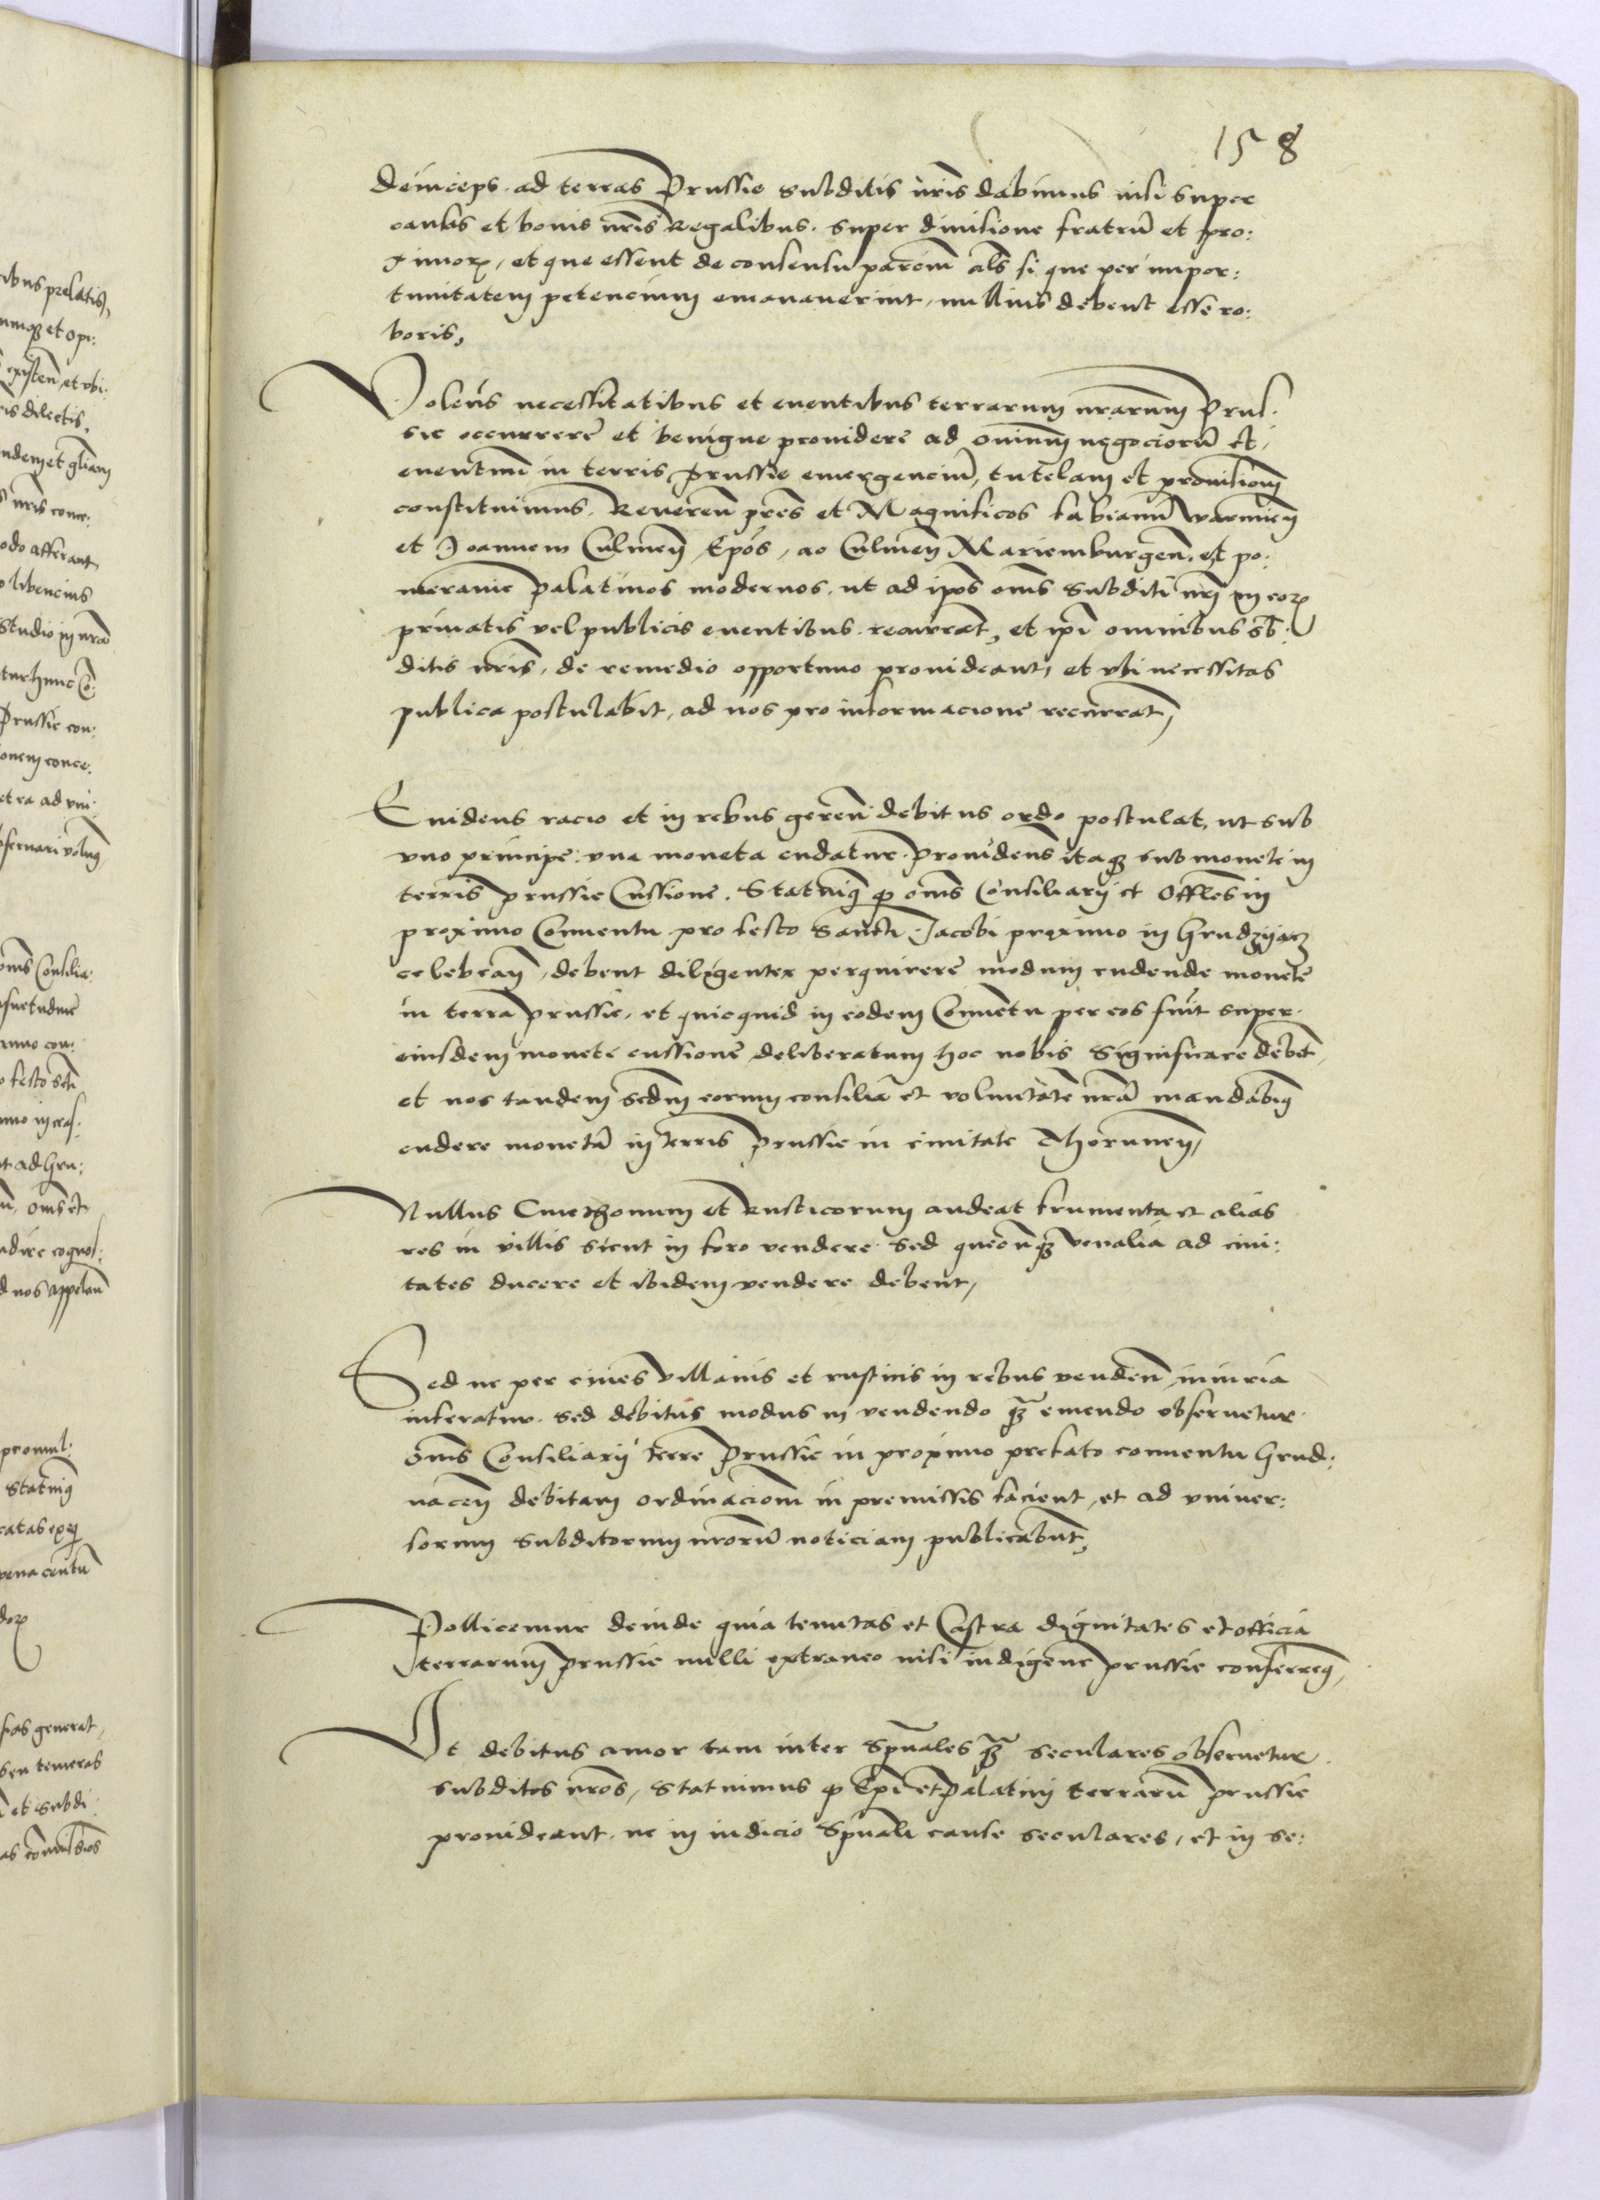 158
deinceps ad terras Prussie subditis nris dabimus nisi super
causis et bonis nris Regalibus. super divisione fratrũ et pro:
ximorꝝ, et que essent de consensu parcium als si que per impor:
tunitatem petencium emanaverint, nullius debent esse ro:
boris,
Volens necessitatibus et eventibus terrarum nrarum Prus:
sie occurrere et benigne providere ad omnium negociorũ et
eventuũ in terris Prussie emergenciũ, tutelam et provisionem
constituimus. Reveren pres et Magnificos fabianũ warmien
et Joannem Culmen Epos, ac Culmen Mariemburgen. et po:
meranie Palatinos modernos. ut ad ipos oms subditi nri in eorꝝ
privatis vel publicis eventibus. recurrãt, et ipi omnibus sb:
ditis nris. de remedio opportuno provideant, et ubi necessitas
publica postulabit, ad nos pro informacione recurrãt,
Evidens racio et in rebus geren debitus ordo postulat, ut sub
uno principe una moneta cudatur. Providens itaqꝫ sub monete in
terris prussie Cussione. Statuimꝰ ꝙ oms Consiliarij et Offles in
proximo Conventu pro festo Sancti Jacobi proximo in Grudzijacz
celebran, debent diligenter perquirere modum cudende monete
in terra prussie, et quicquid in eodem Conventu per eos fuit super
eiusdem monete cussione deliberatum hoc nobis significare debent,
et nos tandem scdm eorum consiliã et voluntate nrã mandabimꝰ
cudere monetã in terris Prussie in civitate Thorunen,
Nullus Cmethonum et Rusticorum audeat frumenta et alias
res in villis sicut in foro vendere. sed quecũqꝫ venalia ad civi:
tates ducere et ibidem vendere debent,
Sed ne per cives villanis et rusticis in rebus venden iniuria
inferatur. sed debitus modus in vendendo qꝫ emendo observetur.
oms Consiliarij terre Prussie in proximo prefato conventu Grud:
nacen debitam ordinaciom in premissis facient, et ad univer:
sorum subditorum nrorũ noticiam publicabunt,
Pollicemur deinde quia tenutas et Castra dignitates et officia
terrarum Prussie nulli extraneo nisi indigene prussie conferremꝰ,
Ut debitus amor tam inter spũales qꝫ seculares observetur
subditos nros, Statuimus ꝙ Epi et Palatini terrarũ prussie
provideant. ne in iudicio Spũali cause seculares, et in se: